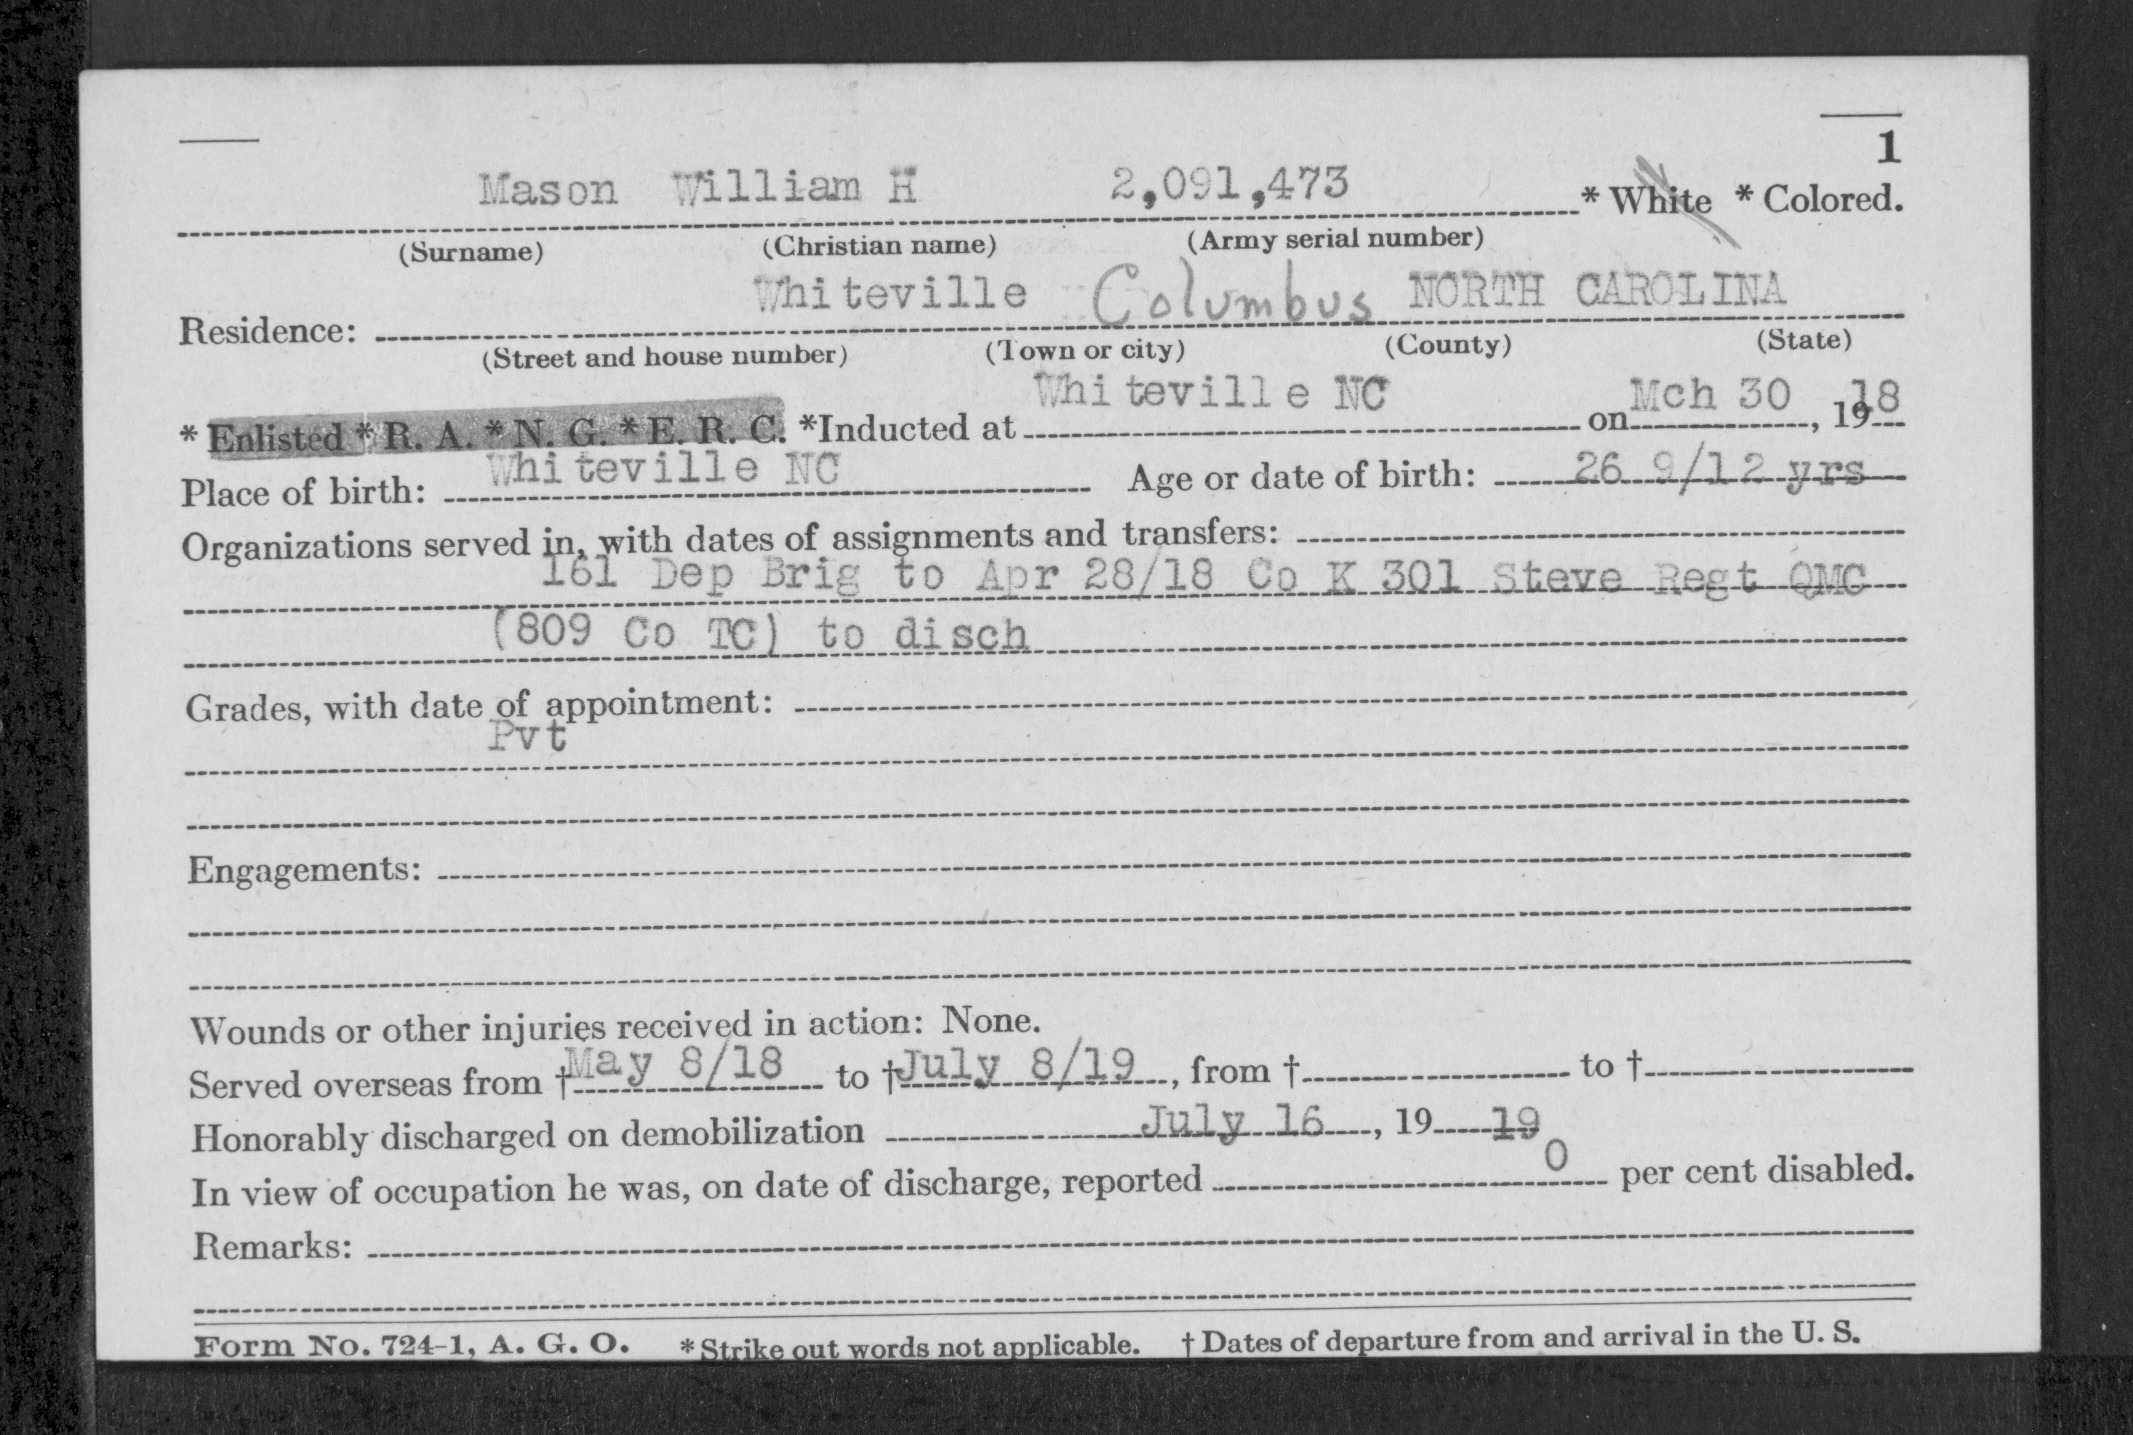 1
Mason William H 2,091,473 * White * Colored.
(Surname) (Christian name) (Army serial number)
Whiteville Columbus NORTH CAROLINA
Residence:
(Street and house number) (Town or city) (County) (State)
Whiteville NC Mch 30 18
* Enlisted * R. A. * N. G. * E. R. C. *Inducted at on , 19
Place of birth: Whiteville NC Age or date of birth: 26 9/12 yrs
Organizations served in, with dates of assignments and transfers:
161 Dep Brig to Apr 28/18 Co K 301 Steve Regt QMC
(809 Co TC) to disch
Grades, with date of appointment:
Pvt
Engagements:
Wounds or other injuries received in action: None.
Served overseas from † May 8/18 to † July 8/19, from † to †
Honorably discharged on demobilization July 16, 19 19
In view of occupation he was, on date of discharge, reported 0 per cent disabled.
Remarks:
Form No. 724-1, A. G. O. *Strike out words not applicable. † Dates of departure from and arrival in the U. S.